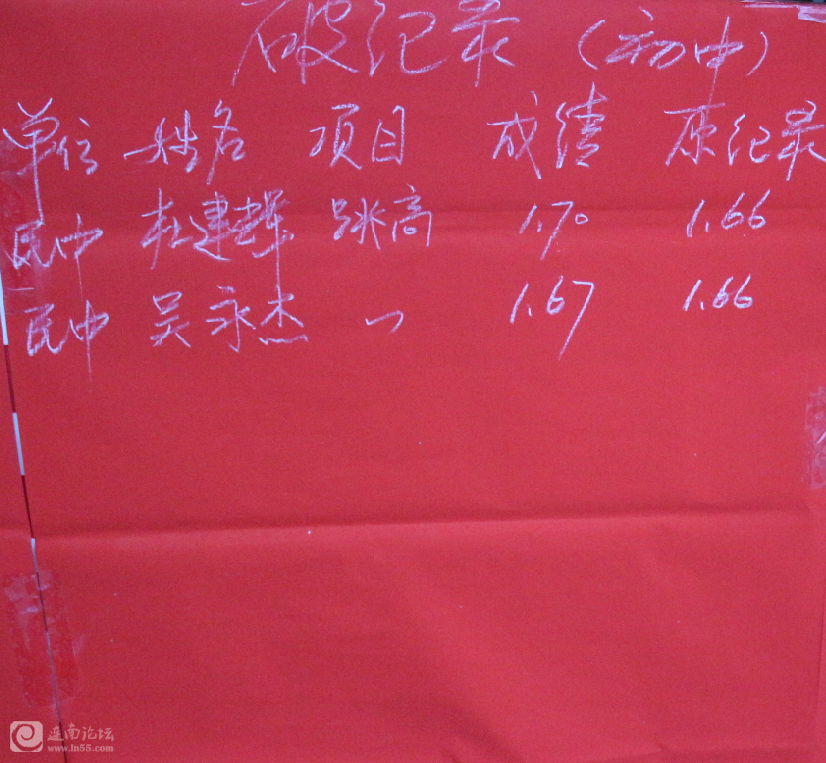 破纪录（初中）
单位 姓名 项目 成绩 原纪录
民中 杜建辉 跳高 1.70 1.66
民中 吴永杰 〃 1.67 1.66
连南论坛
www.ln55.com